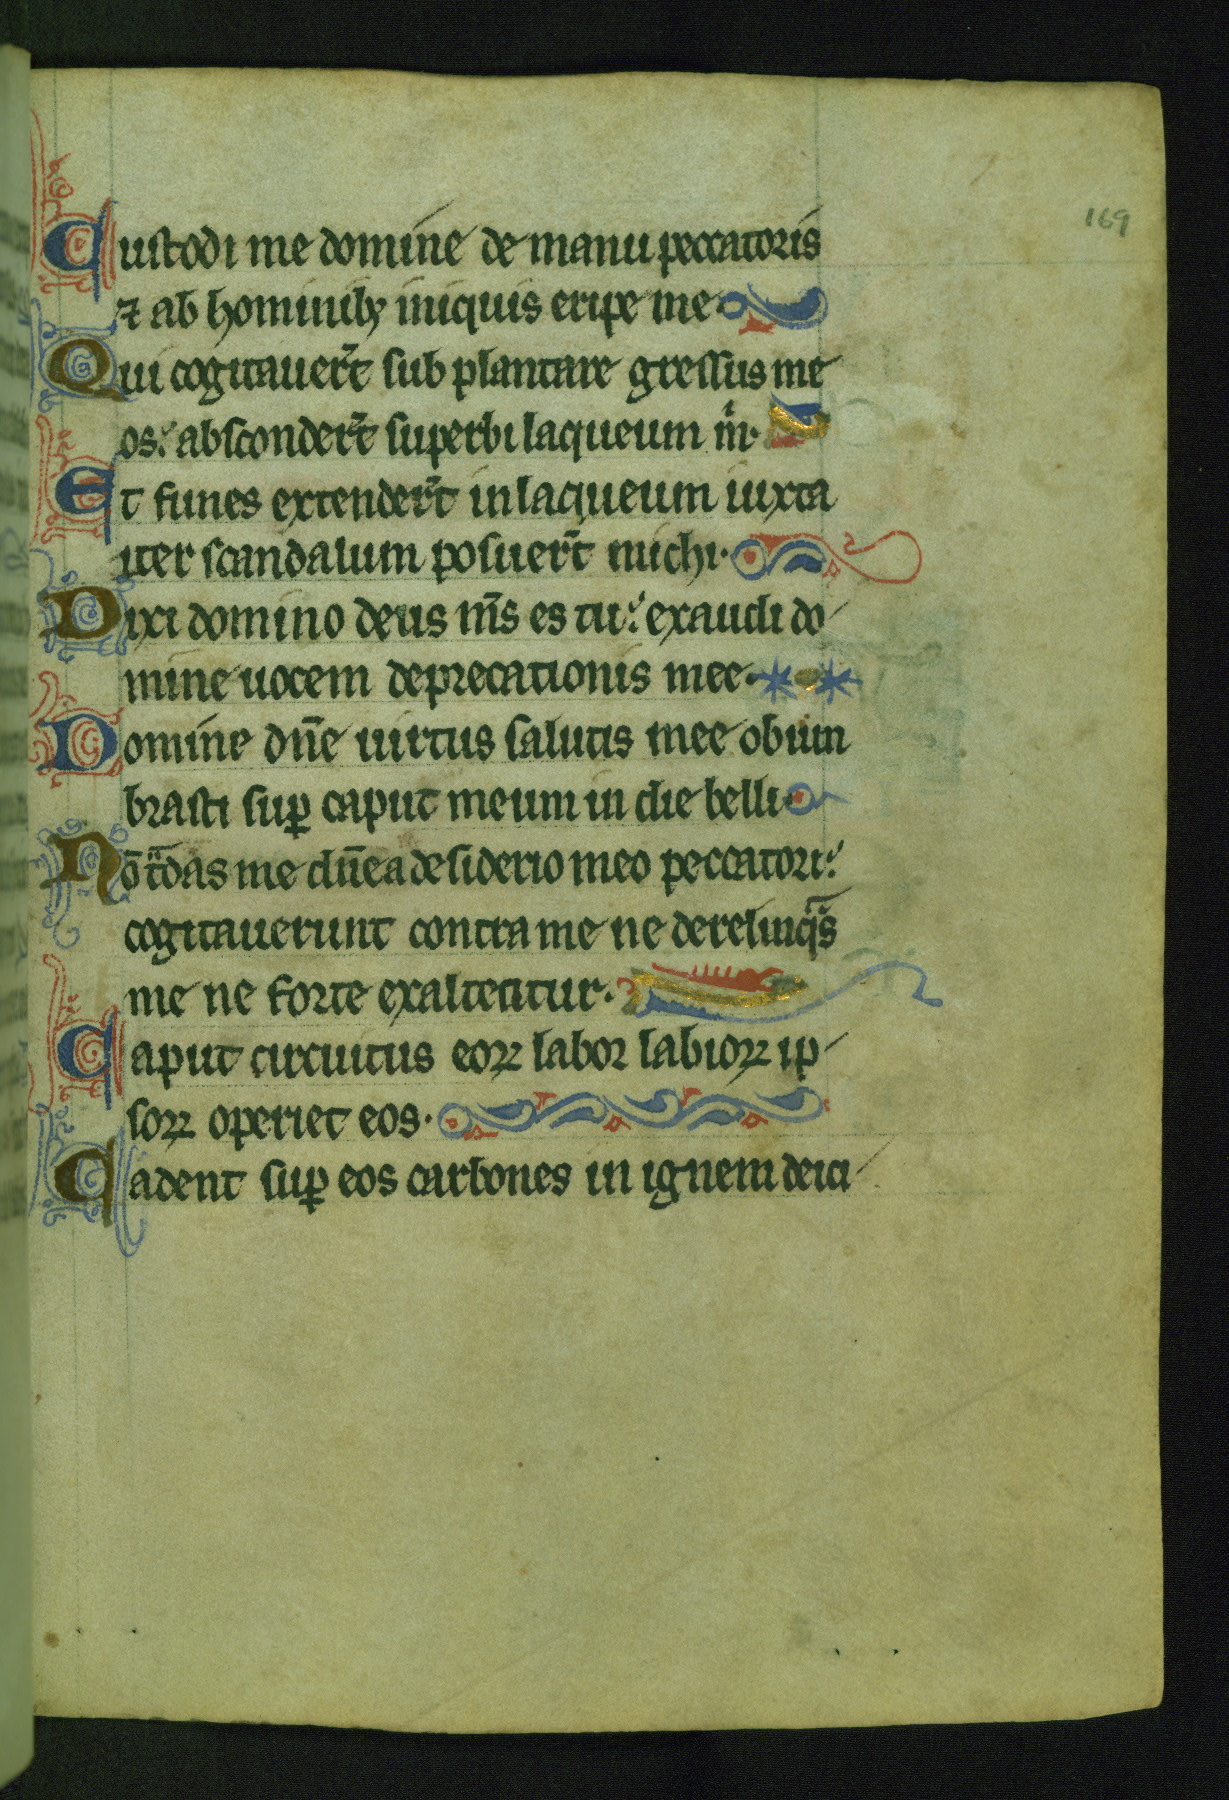 169
Custodi me domine de manu peccatoris
⁊ ab hominibꝫ iniquis eripe me·
Qui cogitauer̄t sub plantare gressus me
os: absconder̄t superbi laqueum m̍·
Et funes extender̄t in laqueum iuxta
iter scandalum posuer̄t michi·
Dixi domino deus m̄s es tu: exaudi do
mine uocem deprecationis mee·
Domine dn̄e uirtus salutis mee obum
brasti suꝑ caput meum in die belli·
Nō tͣdas me dn̄e a desiderio meo peccatori:
cogitauerunt contra me ne derelinqͣs
me ne forte exaltentur·
Caput circuitus eoꝝ labor labioꝝ ip
soꝝ operiet eos·
Cadent suꝑ eos carbones in ignem deici